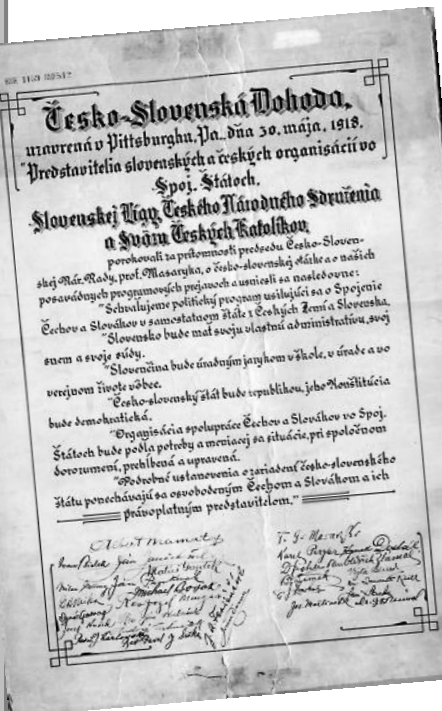 Česko-Slovenská Dohoda,
uzavrená v Pittsburghu, Pa., dňa 30. mája, 1918.
"Predstavitelia slovenských a českých organisácií vo
Spoj. Štátoch,
Slovenskej Ligy, Českého Národného Sdruženia
a Sväzu Českých Katolíkov,
porokovali za prítomnosti predsedu Česko-Sloven-
skej Nár. Rady, prof. Masaryka, o česko-slovenskej otázke a o našich
posavádnych programových prejavoch a usniesli sa nasledovne:
"Schvaľujeme politický program usilujúci sa o Spojenie
Čechov a Slovákov v samostatnom štáte z Českých Zemí a Slovenska.
"Slovensko bude mať svoju vlastnú administratívu, svoj
snem a svoje súdy.
"Slovenčina bude úradným jazykom v škole, v úrade a vo
verejnom živote vôbec.
"Česko-slovenský štát bude republikou, jeho Konštitúcia
bude demokratická.
"Organisácia spolupráce Čechov a Slovákov vo Spoj.
Štátoch bude podľa potreby a meniacej sa situácie, pri spoločnom
dorozumení, prehĺbená a upravená.
"Podrobné ustanovenia o zariadení česko-slovenského
štátu ponechávajú sa osvobodeným Čechom a Slovákom a ich
právoplatným predstaviteľom."
Albert Mamatey
T. G. Masaryk
Karel Pergler
Michael Bosák